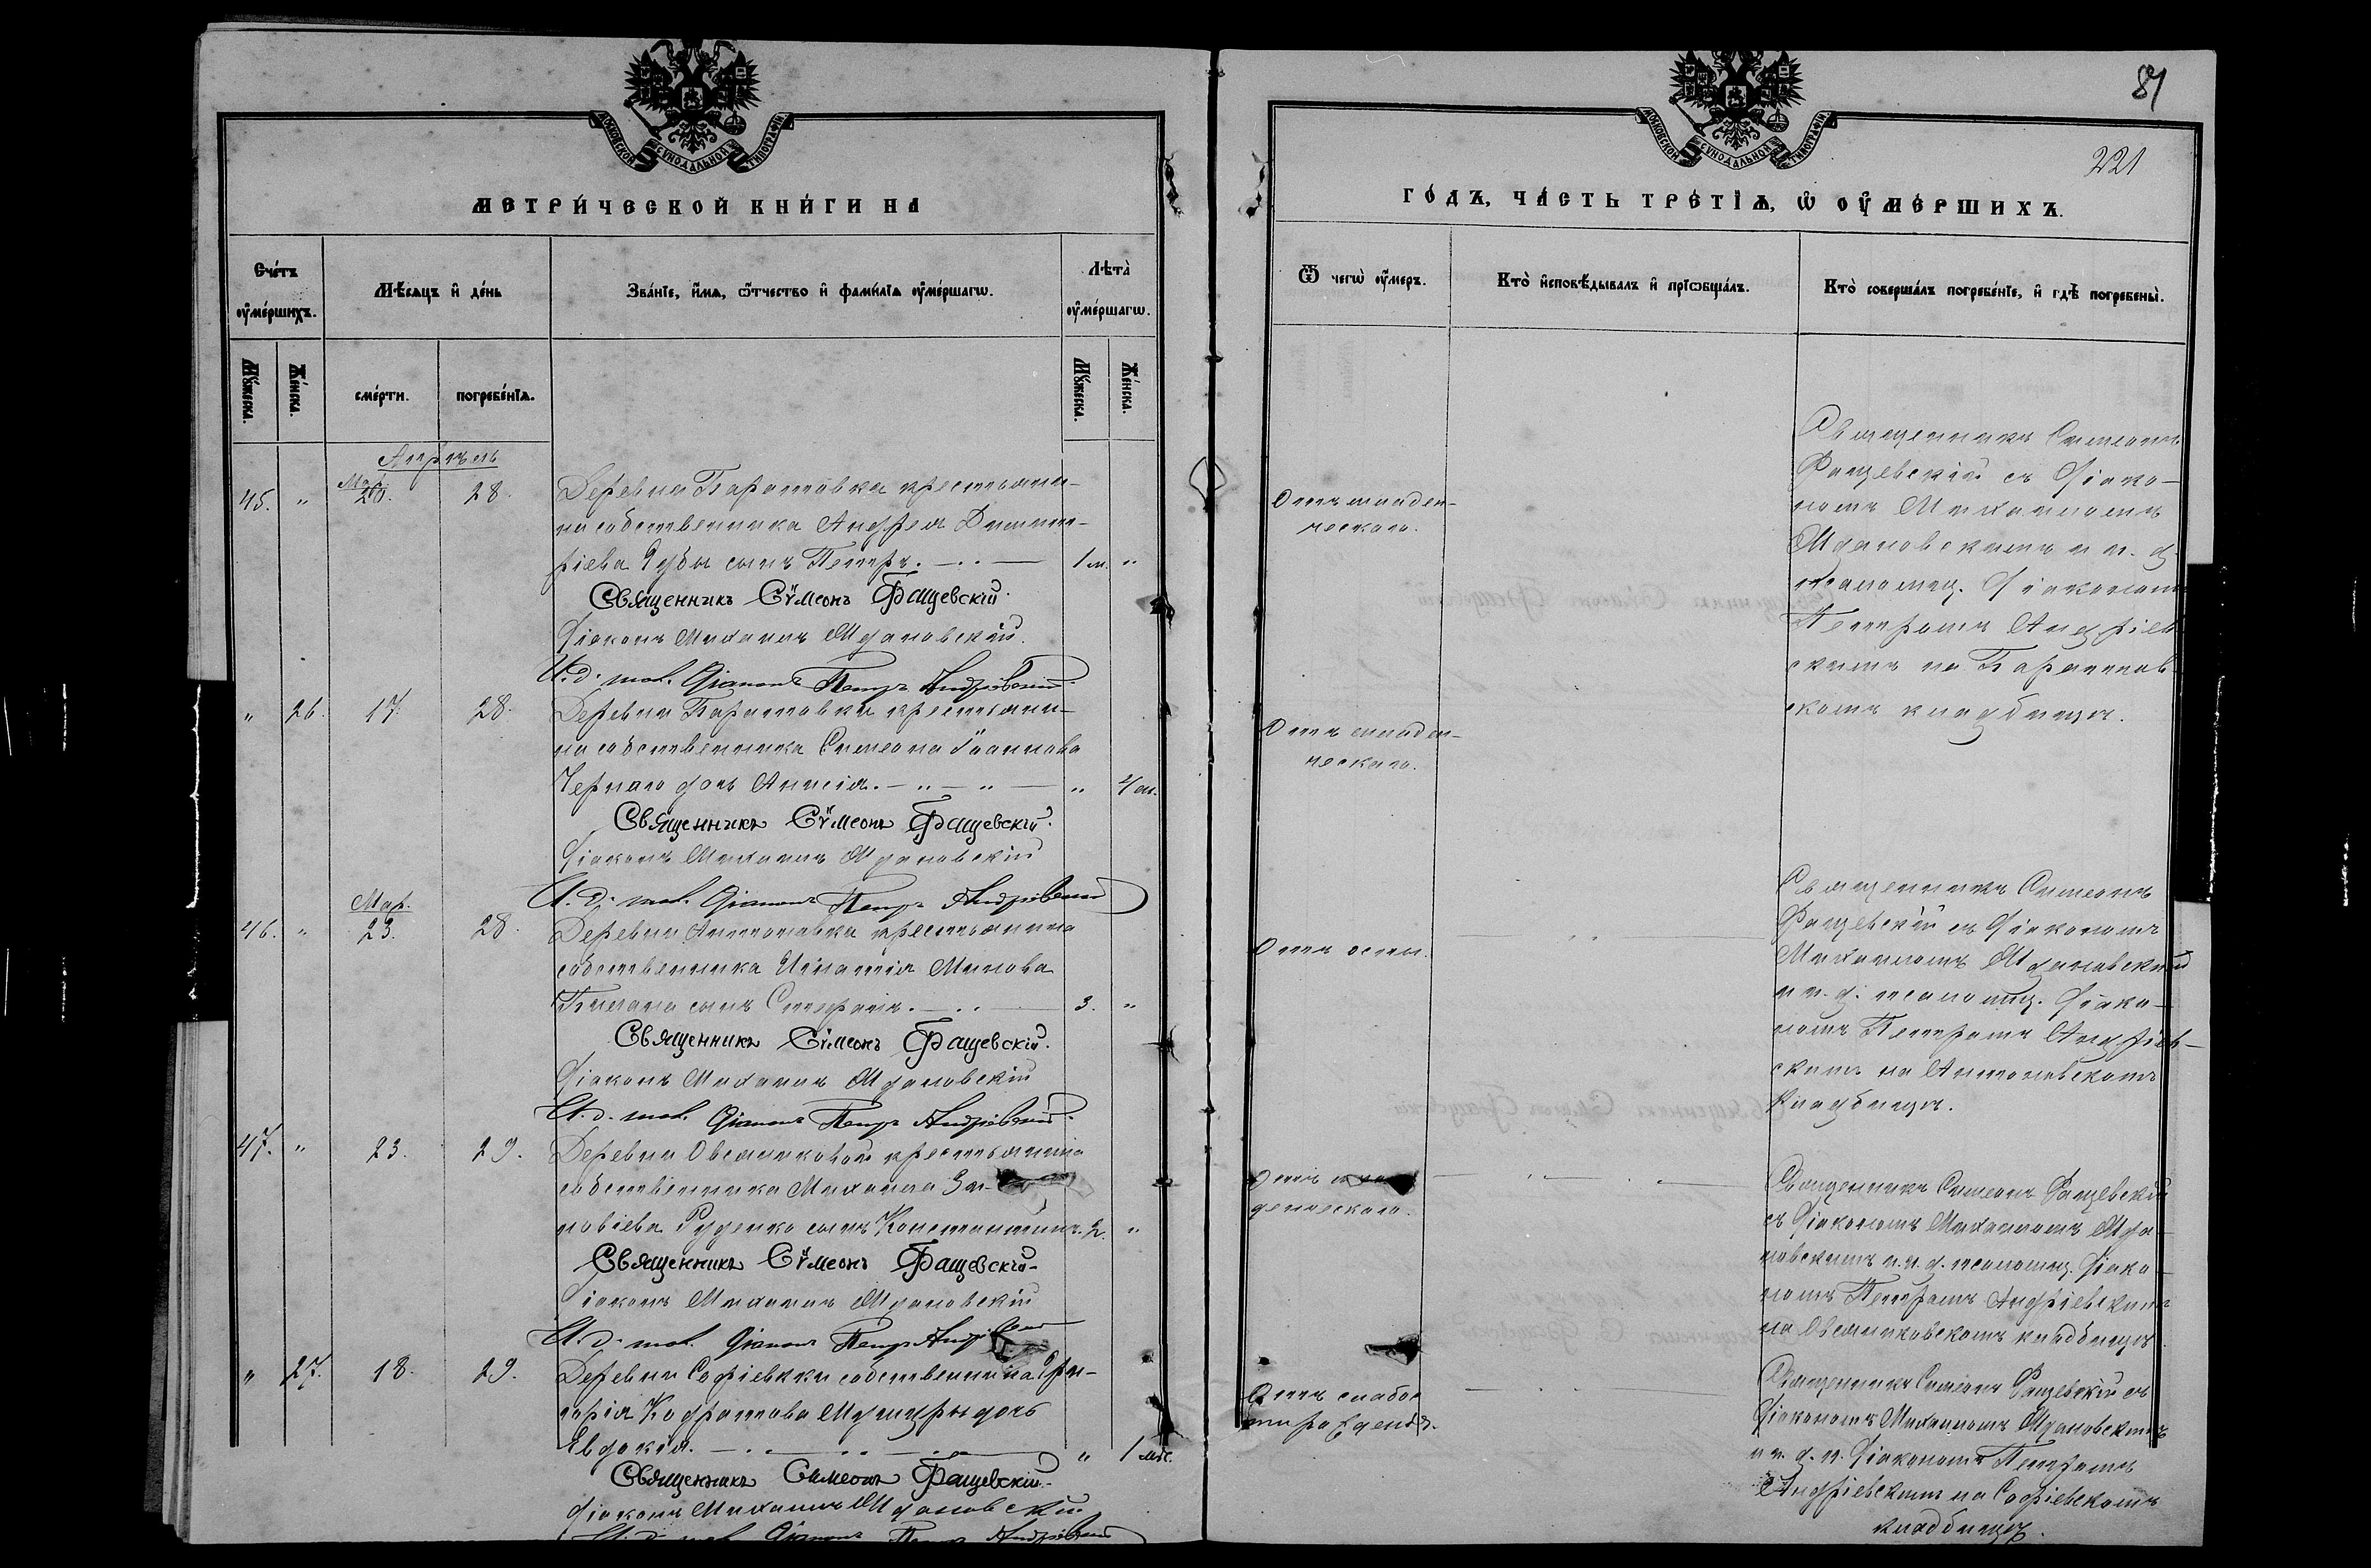 МОСКОВСКОЙ СѴНОДАЛЬНОЙ ТИПОГРАФІИ
МЕТРИ́ЧЕСКОЙ КНИ́ГИ НА
Сче́тъ ᲂу҆ме́ршихъ.
Мѣ́сѧцъ и҆ де́нь
Зва́нїе, и҆́мѧ, ѻ҆́тчество и҆ фами́лїѧ ᲂу҆ме́ршагѡ.
Лѣта̀ ᲂу҆ме́ршагѡ.
Мꙋ́жеска.
Же́нска.
сме́рти.
погребе́нїѧ.
Мꙋ́жеска.
Же́нска.
Апрѣль
45. " Мар. 20. 28. Деревни Баратовка крестьяни-
на собственника Андрея Димит-
ріева Губы сынъ Петръ. 1 м. "
Священникъ Сѵмеонъ Фащевскій.
Діаконъ Михаилъ Ждановскій.
И. д. псал. Діаконъ Петръ Андріевскій
" 26. 17. 28. Деревни Баратовки крестьяни-
на собственника Симеона Іоаннова
Чернаго дочь Аннсія. " 4 м.
Священникъ Сѵмеонъ Фащевскій.
Діаконъ Михаилъ Ждановскій
И. д. псал. Діаконъ Петръ Андріевскій
Мар.
46. " 23. 28. Деревни Антоновки крестьянина
собственника Игнатія Минова
сынъ Стефанъ. 3. "
Священникъ Сѵмеонъ Фащевскій.
Діаконъ Михаилъ Ждановскій
И. д. псал. Діаконъ Петръ Андріевскій.
47. " 23. 29. Деревни Овсяниковой крестьянина
собственника Михаила
новіева Руденко сынъ Константинъ. 2. "
Священникъ Сѵмеонъ Фащевскій
Діаконъ Михаилъ Ждановскій
И. д. псал. Діаконъ Петръ
" 27. 18. 29. Деревни Софіевки собственника Гри-
горія Кодратова дочь
Евдокія. " 1 мѣс.
Священникъ Симеонъ Фащевскій.
Діаконъ Михаилъ Ждановскій
И. д. псал. Діаконъ Петръ Андріевскій
221
МОСКОВСКОЙ СѴНОДАЛЬНОЙ ТИПОГРАФІИ
ГО́ДЪ, ЧА́СТЬ ТРЕ́ТЇѦ, Ѡ҆ ОУ҆МЕ́РШИХЪ.
Ѿ чегѡ̀ ᲂу҆́меръ.
Кто̀ и҆сповѣ́дывалъ и҆ прїѡбща́лъ.
Кто̀ соверша́лъ погребе́нїе, и҆ гдѣ̀ погребены̀.
Отъ младен-
ческаго.
Священникъ Симеонъ
Фащевскій съ Діако-
номъ Михаиломъ
Ждановскимъ и и. д.
псаломщ. Діаконом
Петромъ Андріев
скимъ на Баратов
скомъ кладбищѣ.
Отъ младен-
ческаго.
Отъ оспы.
Священникъ Симеонъ
Фащевскій съ Діакономъ
Михаиломъ Ждановским
и и. д. псаломщ. Діако-
номъ Петромъ Андріев-
скимъ на Антоновскомъ
Кладбищѣ.
Отъ
денческаго.
Священникъ Симеонъ Фащевскій
съ Діакономъ Михаиломъ Жда-
новскимъ и и. д. псаломщ. Діако
номъ Петромъ Андріевскимъ
на Овсяниковскомъ кладбищѣ
Отъ слабос
ти рожденія.
Священникъ Симеонъ Фащевскій съ
Діакономъ Михаиломъ Ждановскимъ
и и. д. п. Діакономъ Петромъ
Андріевскимъ на Софіевскомъ
кладбищѣ.